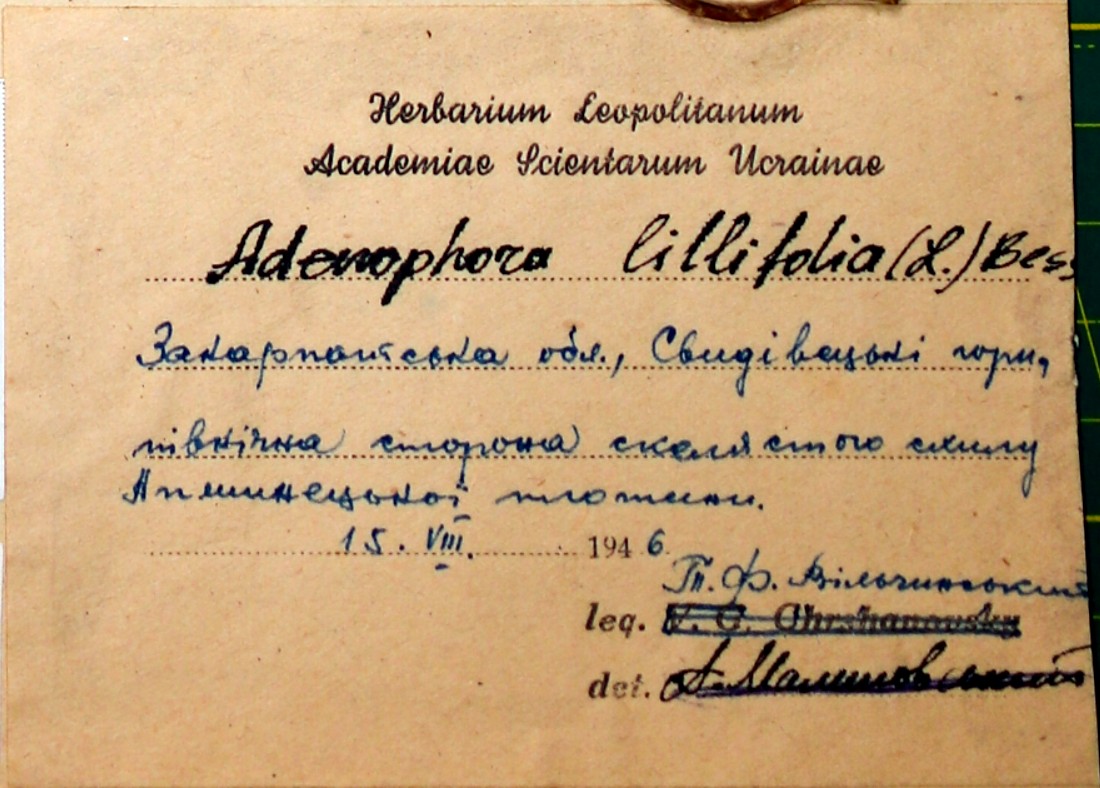 Herbarium Leopolitanum
Academiae Scientarum Ucrainae
Adenophora lillifolia (L.) Bess
Закарпатська обл., Свидівецькі гори,
північна сторона скелястого схилу
Апшинецької полонини.
15. VIII. 1946
Т. Ф. Вільчинський
leg. V. G. Chrshanovsky
det. А. Малиновський